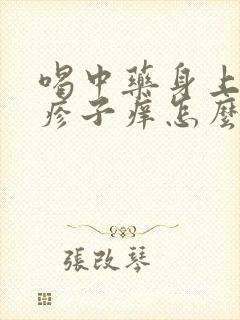 喝中藥身上
疹子痒怎麼
張改琴